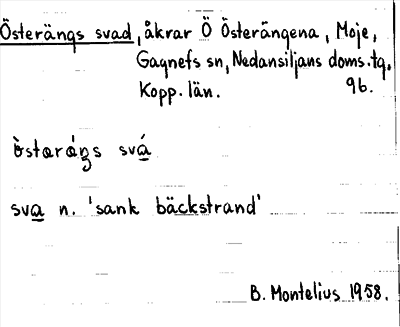 Österängs svad, åkrar Ö Österängena, Moje,
Gagnefs sn, Nedansiljans doms.tg.
Kopp. län. 96.
òstəráŋs svá
sva n. 'sank bäckstrand'
B. Montelius 1958.